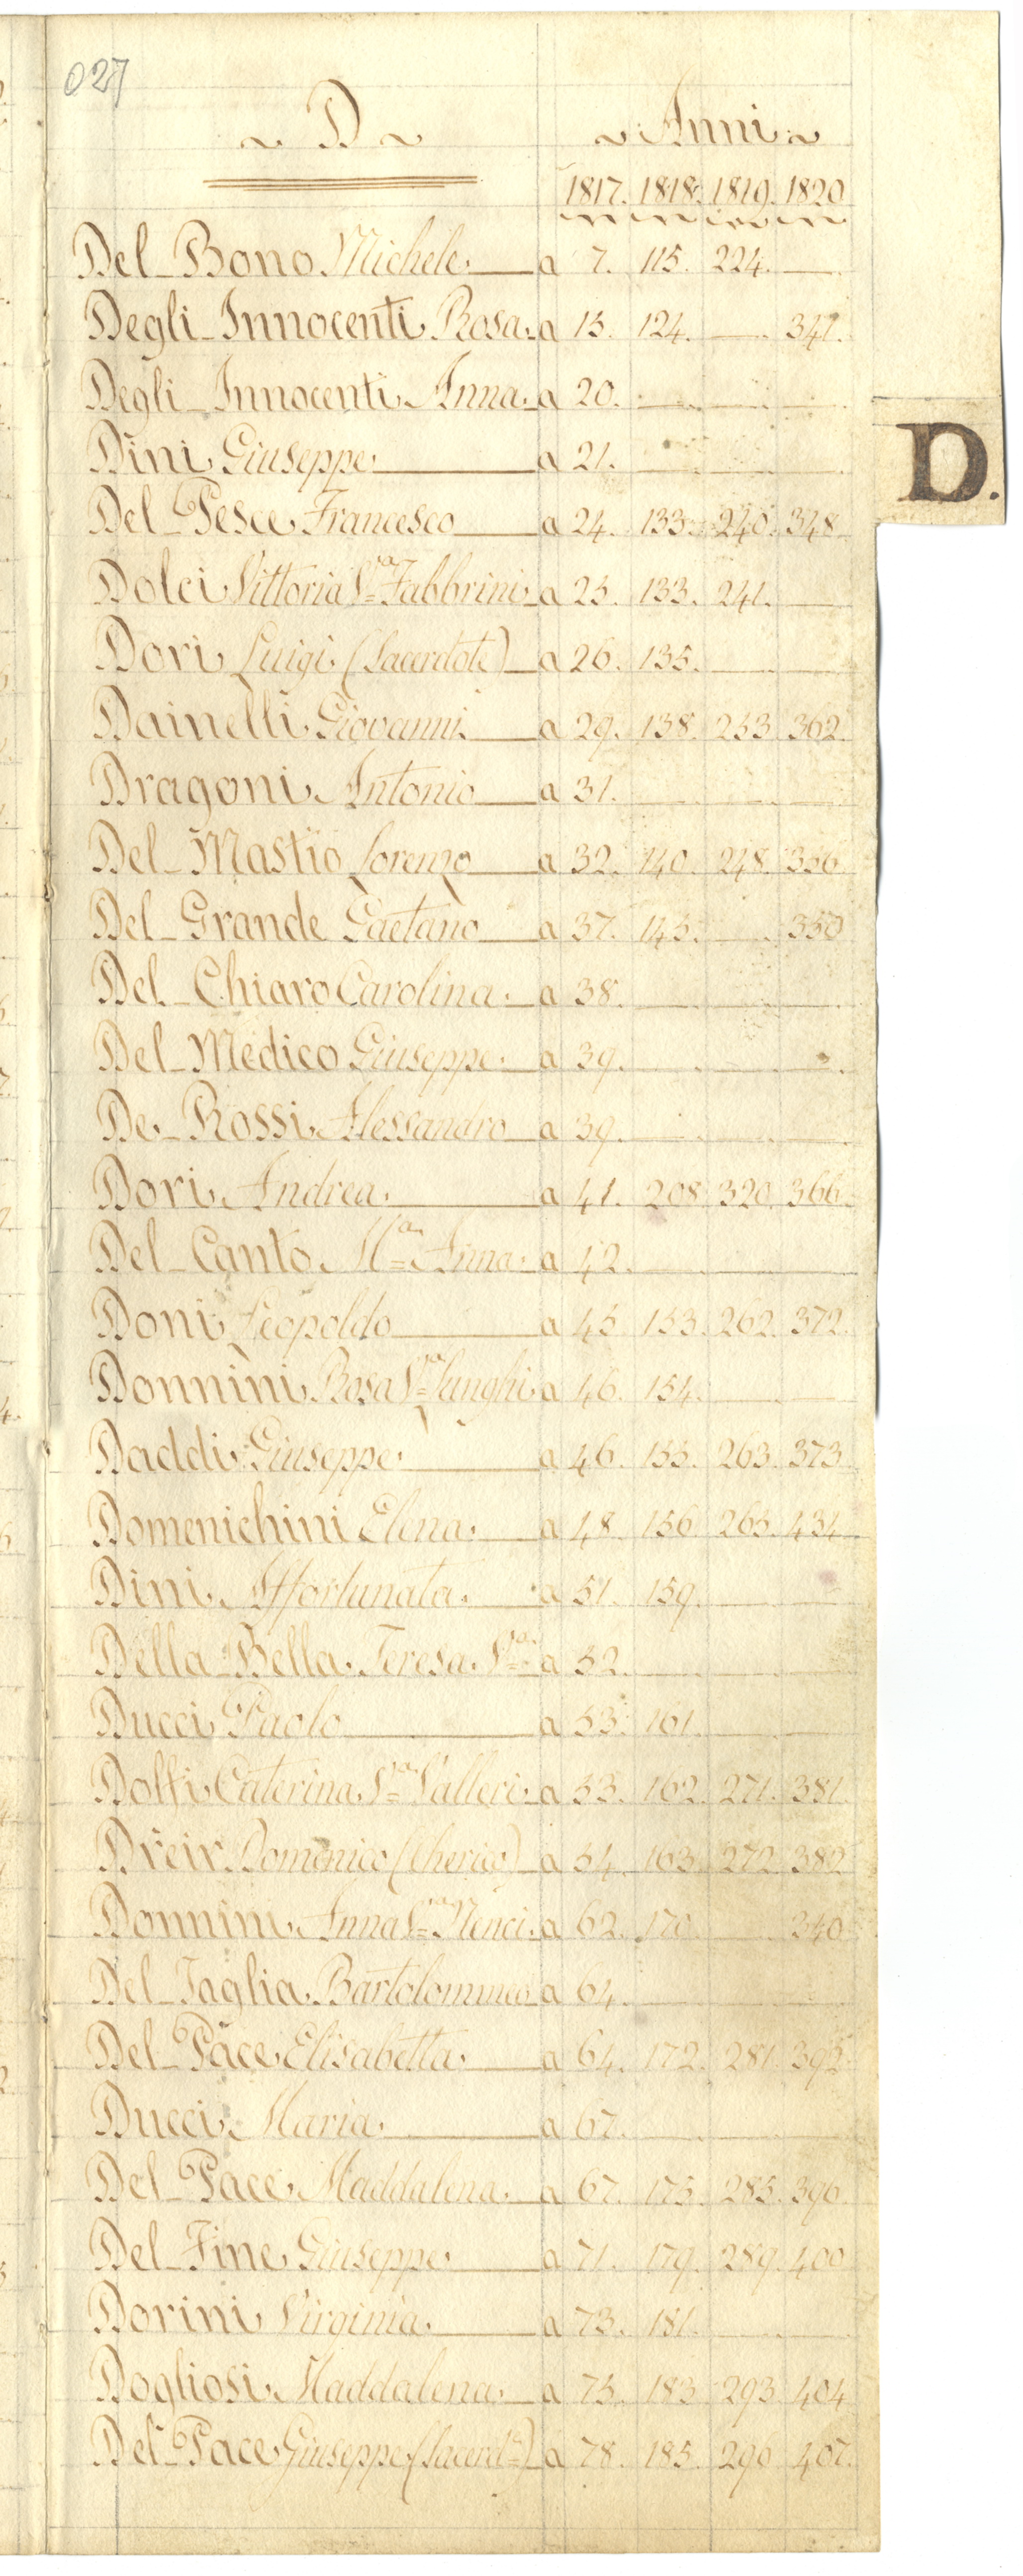 027
~ D ~ ~ Anni ~
1817. 1818. 1819. 1820
Del-Bono Michele. a 7. 115. 224. —
Degli-Innocenti Rosa. a 15. 124. — 347.
Degli-Innocenti Anna. a 20. — — —
Dini Giuseppe a 21. — — —
Del-Pesce Francesco a 24. 133. 240. 348
Dolci Vittoria Va Fabbrini. a 25. 133. 241. —
Dori Luigi (Sacerdote) a 26. 135. — —
Dainelli Giovanni. a 29. 138. 253. 362.
Dragoni Antonio a 31. — — —
Del-Mastio Lorenzo a 32. 140. 248. 356
Del-Grande Gaetano a 37. 145. — 350
Del-Chiaro Carolina. a 38. — — —
Del-Medico Giuseppe. a 39. — — —
De-Rossi Alessandro a 39. — — —
Dori Andrea. a 41. 208. 320. 366.
Del-Canto Ma Anna. a 42. — — —
Doni Leopoldo a 45 153. 262. 372.
Donnini Rosa Va Lunghi a 46. 154. — —
Daddi Giuseppe. a 46. 155. 263. 373.
Domenichini Elena. a 48. 156. 265. 434
Dini Affortunata. a 51. 159. — —
Della-Bella Teresa Va a 52. — — —
Ducci Paolo a 53. 161. — —
Dolfi Caterina Va Valleri. a 53. 162. 271. 381.
Dreir Domenico (Cherico) a 54. 163. 272. 382
Donnini Anna Va Nenci. a 62. 170. — 340
Del-Taglia Bartolommeo a 64. — — —
Del-Pace Elisabetta. a 64. 172. 281. 392
Ducci Maria. a 67. — — —
Del-Pace Maddalena. a 67. 175. 285. 396.
Del-Fine Giuseppe. a 71. 179. 289. 400
Dorini Virginia. a 73. 181. — —
Dogliosi Maddalena. a 75. 183. 293. 404
Del-Pace Giuseppe (Sacerde) a 78. 185. 296. 407.
D.